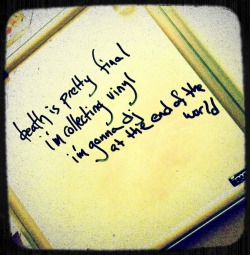 death is pretty final
i'm collecting vinyl
i'm gonna dj
at the end of the
world